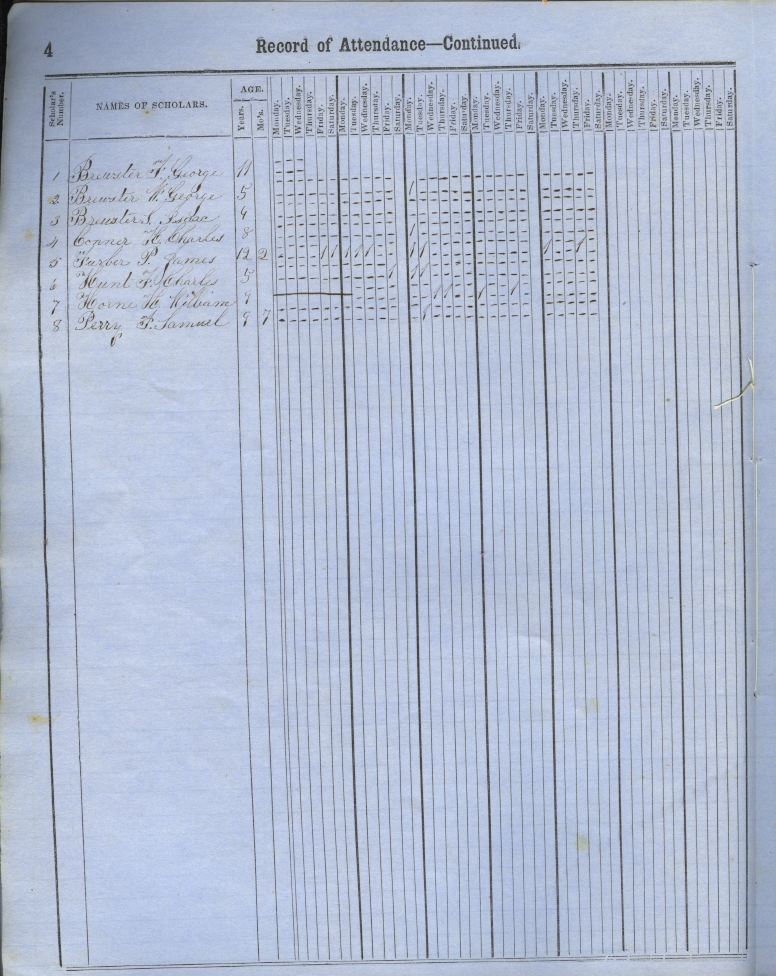 4
Record of Attendance—Continued.
Scholar's Number. NAMES OF SCHOLARS. AGE. Years. Mo's. Monday. Tuesday. Wednesday. Thursday. Friday. Saturday. Monday. Tuesday. Wednesday. Thursday. Friday. Saturday. Monday. Tuesday. Wednesday. Thursday. Friday. Saturday. Monday. Tuesday. Wednesday. Thursday. Friday. Saturday. Monday. Tuesday. Wednesday. Thursday. Friday. Saturday. Monday. Tuesday. Wednesday. Thursday. Friday. Saturday. Monday. Tuesday. Wednesday. Thursday. Friday. Saturday.
1 Brewster F. George 11
2 Brewster W. George 5
3 Brewster Isaac
4 Conner H. Charles 8
5 Furber P. James 12 2
6 Hunt F. Charles 5
7 Horne H. William
8 Perry F. Samuel 9 7